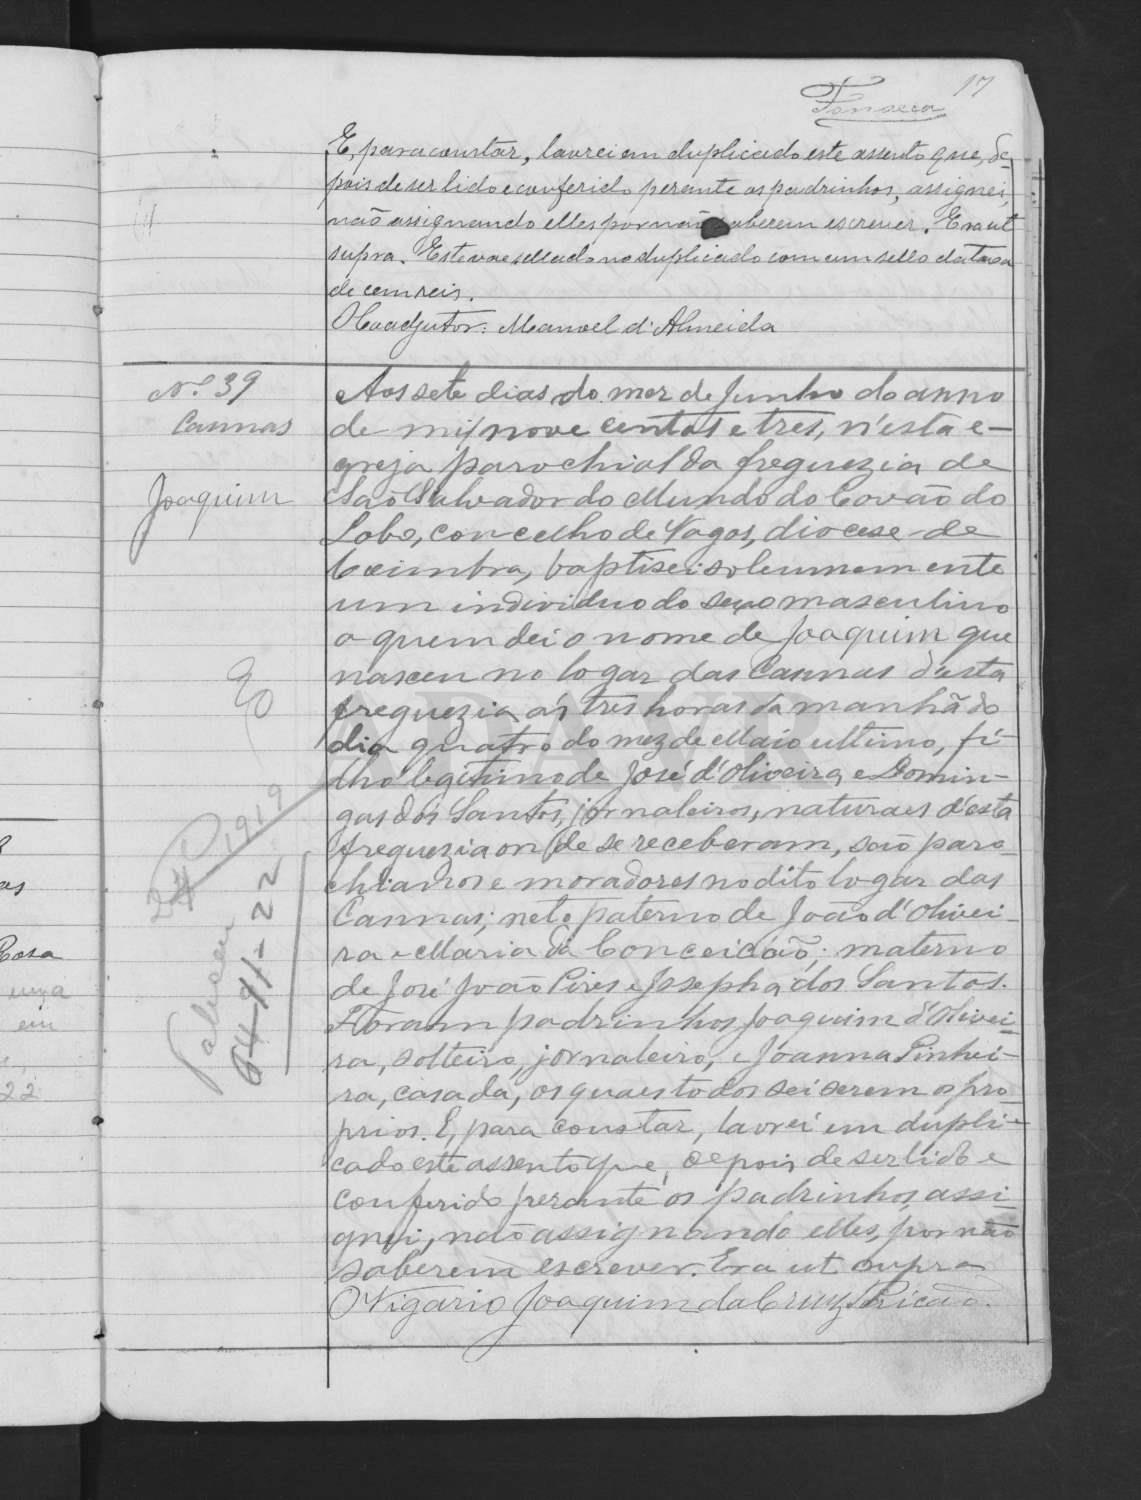 17
Fonseca
E, para constar, lavrei em duplicado este assento que, de-
pois de ser lido e conferido perante os padrinhos, assignei,
não assignando elles por não saberem escrever. Era ut
supra. Este vae sellado no duplicado com um sello da taxa
de cem reis.
O Coadjutor: Manoel d'Almeida
Nº 39
Cannas
Joaquim
Aos sete dias do mez de Junho do anno
de mil nove centos e tres, n'esta e-
greja parochial da freguezia de
São Salvador do Mundo do Covão do
Lobo, concelho de Vagos, diocese de
Coimbra, baptisei solemnemente
um individuo do sexo masculino
a quem dei o nome de Joaquim que
nasceu no logar das Cannas d'esta
freguezia ás tres horas da manhã do
dia quatro do mez de Maio ultimo, fi-
lho legitimo de José d'Oliveira e Domin-
gas dos Santos, jornaleiros, naturaes d'esta
freguezia onde se receberam, são paro-
chianos e moradores no dito logar das
Cannas; neto paterno de João d'Olivei-
ra e Maria da Conceição; materno
de José João Pires e Josepha dos Santos.
Foram padrinhos Joaquim d'Olivei-
ra, solteiro, jornaleiro, e Joanna Pinhei-
ra, casada, os quaes todos sei serem os pro-
prios. E, para constar, lavrei em dupli-
cado este assento que, depois de ser lido e
conferido perante os padrinhos, assi-
gnei, não assignando elles, por não
saberem escrever. Era ut supra
O Vigario Joaquim da Cruz Pericão.
1919
Faleceu
22